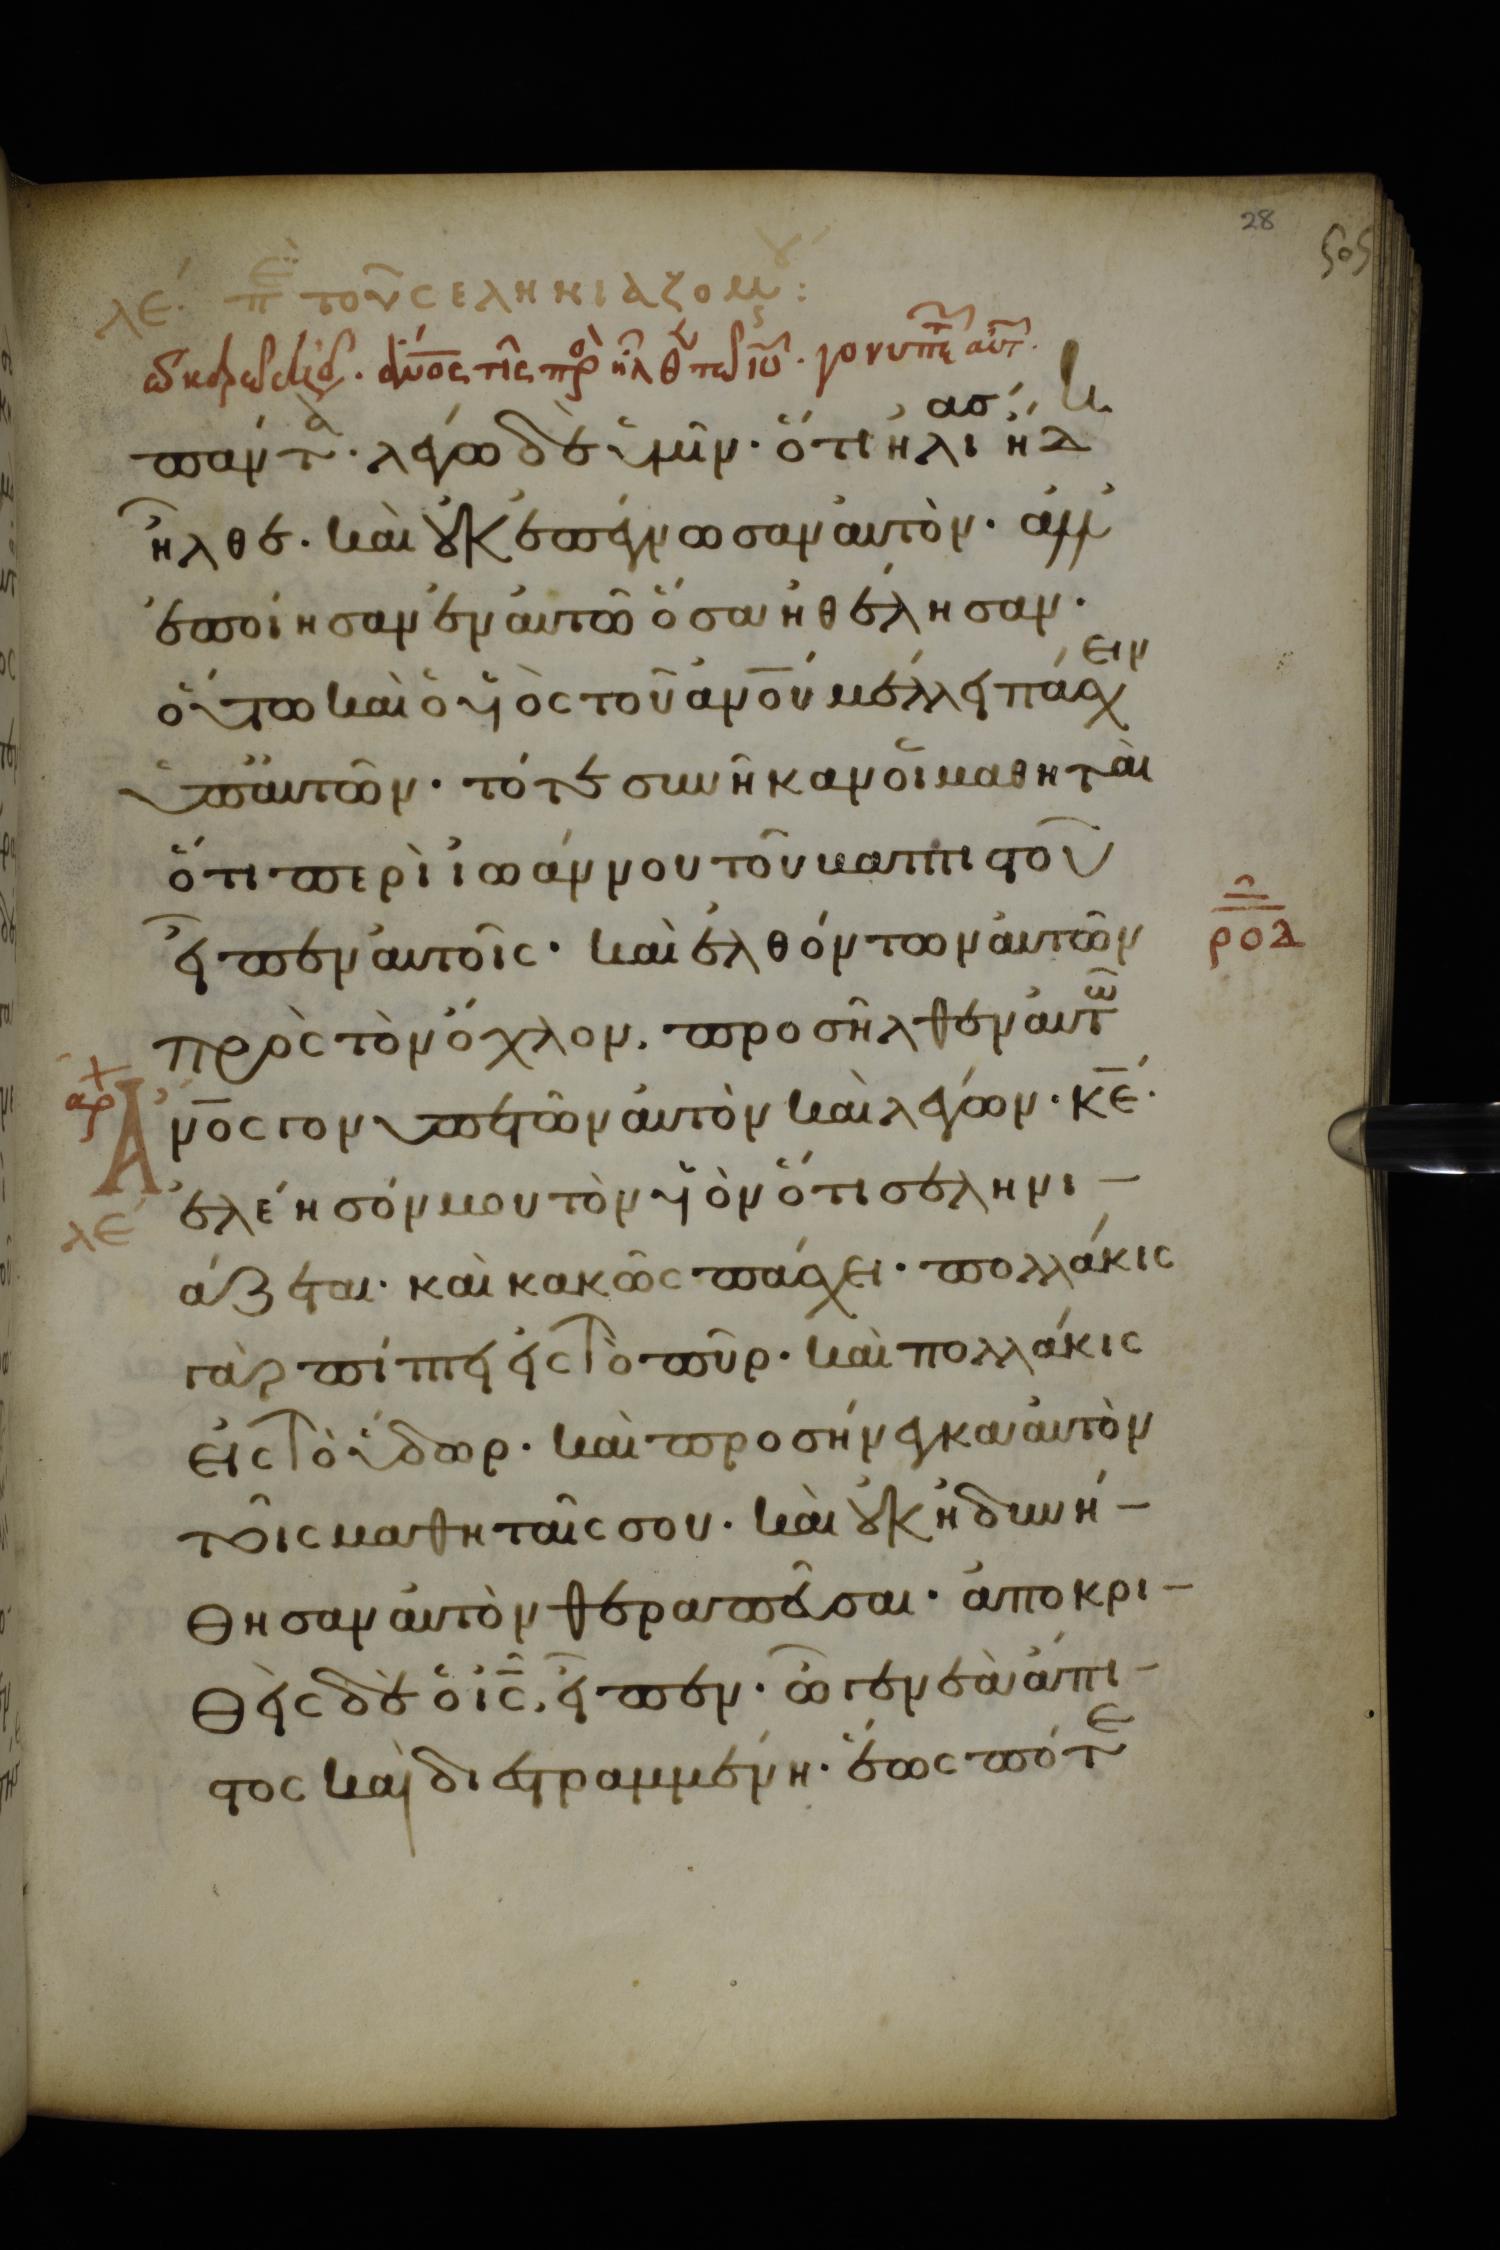 28
λε´ πε τοῦ σεληνιαζομ :
τῶ καιρῶ ἐκείν. ἀν̅ος τὶς προσῆλθεν τῶ ἰῦ. γονυπετ αὐτ.
πάντα· λέγω δὲ ὑμῖν· ὅτι ἠλίας ἤδη
ἦλθε· καὶ οὐκ ἐπέγνωσαν αὐτὸν· ἀλλ᾽
ἐποίησαν ἐν αὐτῶ ὅσα ἠθέλησαν·
οὕτω καὶ ὁ υἱὸς τοῦ ἀν̅ου μέλλει πάσχειν
ὑπ᾽ αὐτῶν· τότε συνῆκαν οἱ μαθηταὶ
ὅτι περὶ ἰωάννου τοῦ βαπτιστοῦ
εἶπεν αὐτοῖς· καὶ ἐλθόντων αὐτῶν
ροδ
πρὸς τὸν ὄχλον, προσῆλθεν αὐτῶ
αρχ
Ἄν̅ος γονυπετῶν αὐτὸν καὶ λέγων· κ̅ε·
λε´
ἐλέησόν μου τὸν υἱὸν ὅτι σεληνι–
άζεται· καὶ κακῶς πάσχει· πολλάκις
γὰρ πίπτει εἰς τὸ πῦρ· καὶ πολλάκις
εἰς τὸ ὕδωρ· καὶ προσήνεγκα αὐτὸν
τοῖς μαθηταῖς σου· καὶ οὐκ ἠδυνή–
θησαν αὐτὸν θεραπεῦσαι· ἀποκρι–
θεὶς δὲ ὁ ἰ̅ς, εἶπεν· ὦ γενεὰ ἄπι–
στος καὶ διεστραμμένη· ἕως πότε